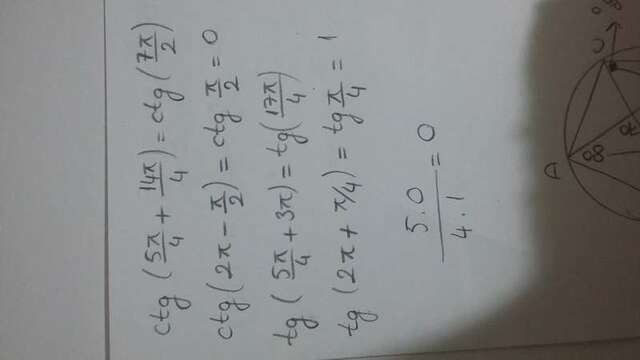 ctg (5π/4 + 14π/4) = ctg (7π/2)
ctg (2π - π/2) = ctg π/2 = 0
tg (5π/4 + 3π) = tg (17π/4)
tg (2π + π/4) = tg π/4 = 1
5.0/4.1 = 0
A